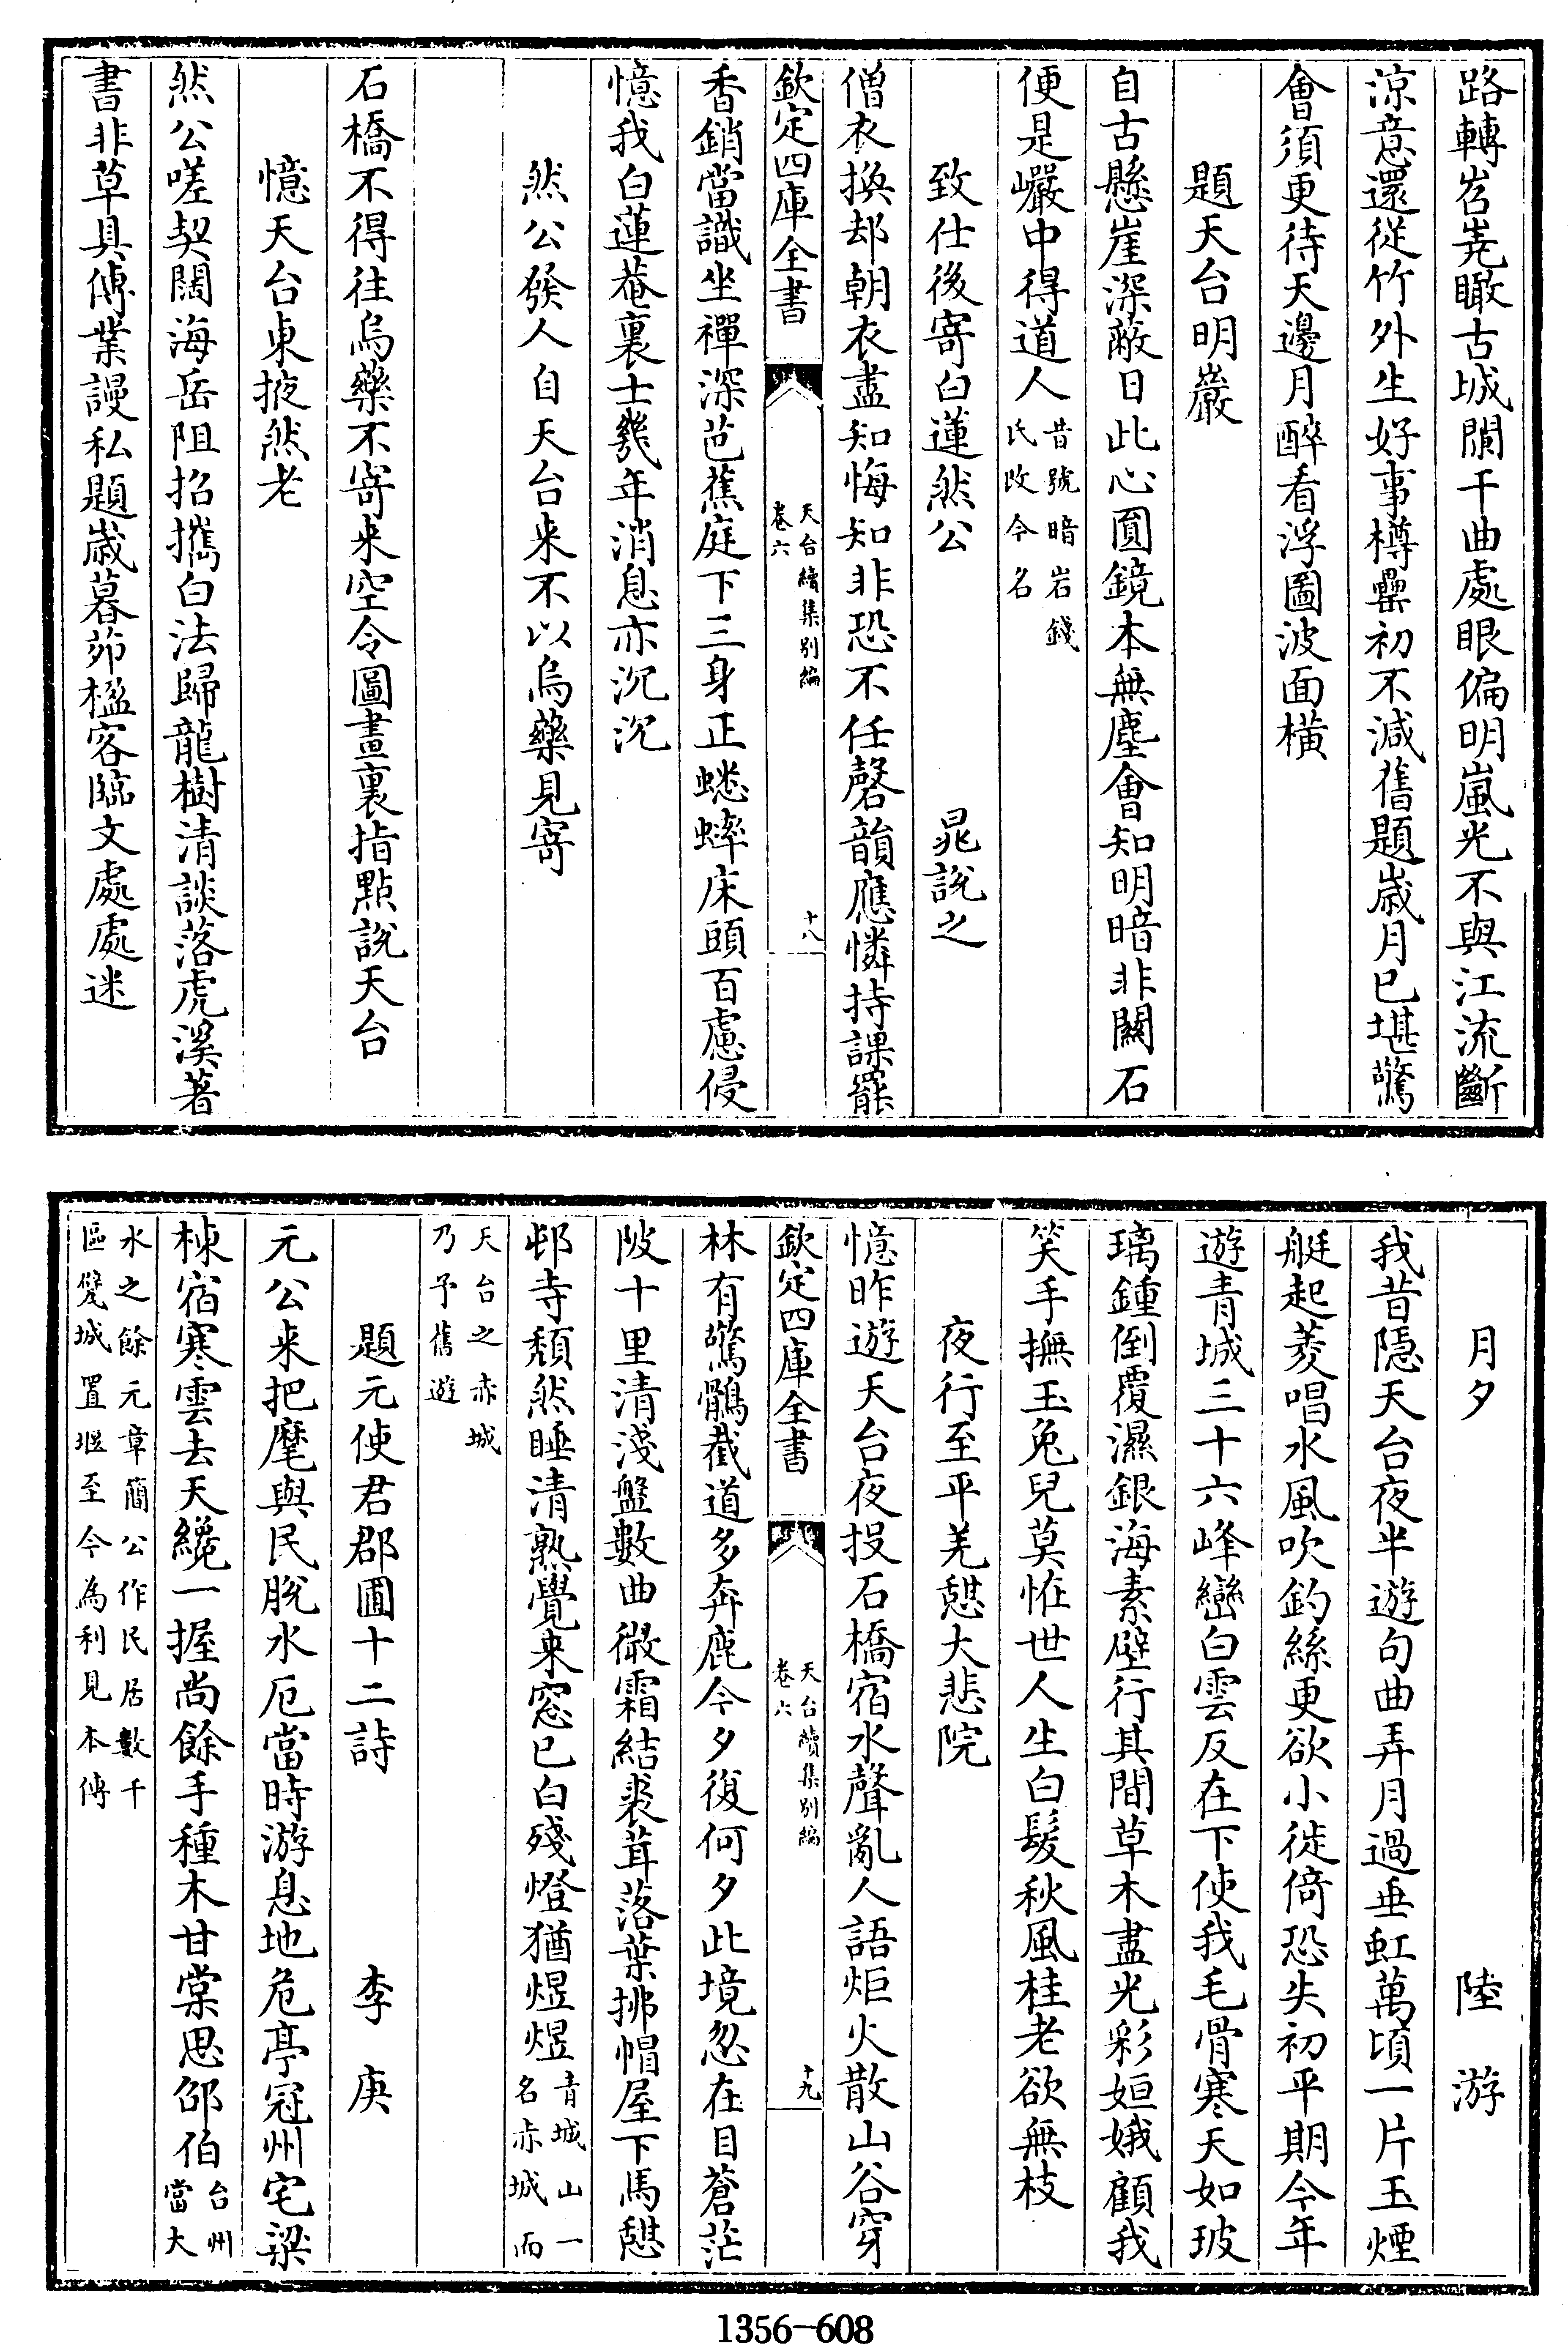 路轉岧嶤瞰古城闌干曲處眼偏明嵐光不與江流斷
涼意還從竹外生好事樽罍初不減舊題歲月已堪驚
會須更待天邊月醉看浮圖波面橫
題天台明巖
自古懸崖深蔽日此心圓鏡本無塵會知明暗非關石
便是巖中得道人昔號暗岩錢
氏改今名
致仕後寄白蓮然公 晁說之
僧衣換却朝衣盡知悔知非恐不任磬韻應憐持課罷
欽定四庫全書 天台續集別編
卷六 十八
香銷當識坐禪深芭蕉庭下三身正蟋蟀床頭百慮侵
憶我白蓮菴裏士幾年消息亦沉沉
然公發人自天台来不以烏藥見寄
石橋不得往烏藥不寄来空令圖畫裏指點說天台
憶天台東掖然老
然公嗟契闊海岳阻招攜白法歸龍樹清談落虎溪著
書非草具傅業謾私題歲暮茆楹客臨文處處迷
月夕 陸游
我昔隱天台夜半遊句曲弄月過垂虹萬頃一片玉煙
艇起菱唱水風吹釣絲更欲小徙倚恐失初平期今年
遊青城三十六峰巒白雲反在下使我毛骨寒天如玻
璃鍾倒覆濕銀海素壁行其間草木盡光彩姮娥顧我
笑手撫玉兔兒莫恠世人生白髮秋風桂老欲無枝
夜行至平羌憇大悲院
憶昨遊天台夜投石橋宿水聲亂人語炬火散山谷穿
欽定四庫全書 天台續集別編
卷六 十九
林有驚鶻截道多奔鹿今夕復何夕此境忽在目蒼茫
陂十里清淺盤數曲微霜結裘茸落葉拂帽屋下馬憇
邨寺頹然睡清熟覺来窓已白殘燈猶煜煜青城山一
名赤城而
天台之赤城
乃予舊遊
題元使君郡圃十二詩 李庚
元公来把麾與民脫水厄當時游息地危亭冠州宅梁
棟宿寒雲去天纔一握尚餘手種木甘棠思邵伯台州
當大
水之餘元章簡公作民居數千
區甓城置堰至今為利見本傳
1356-608